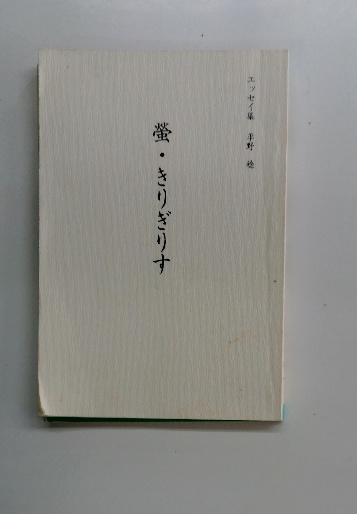 エッセイ集 平野 稔
螢・きりぎりす